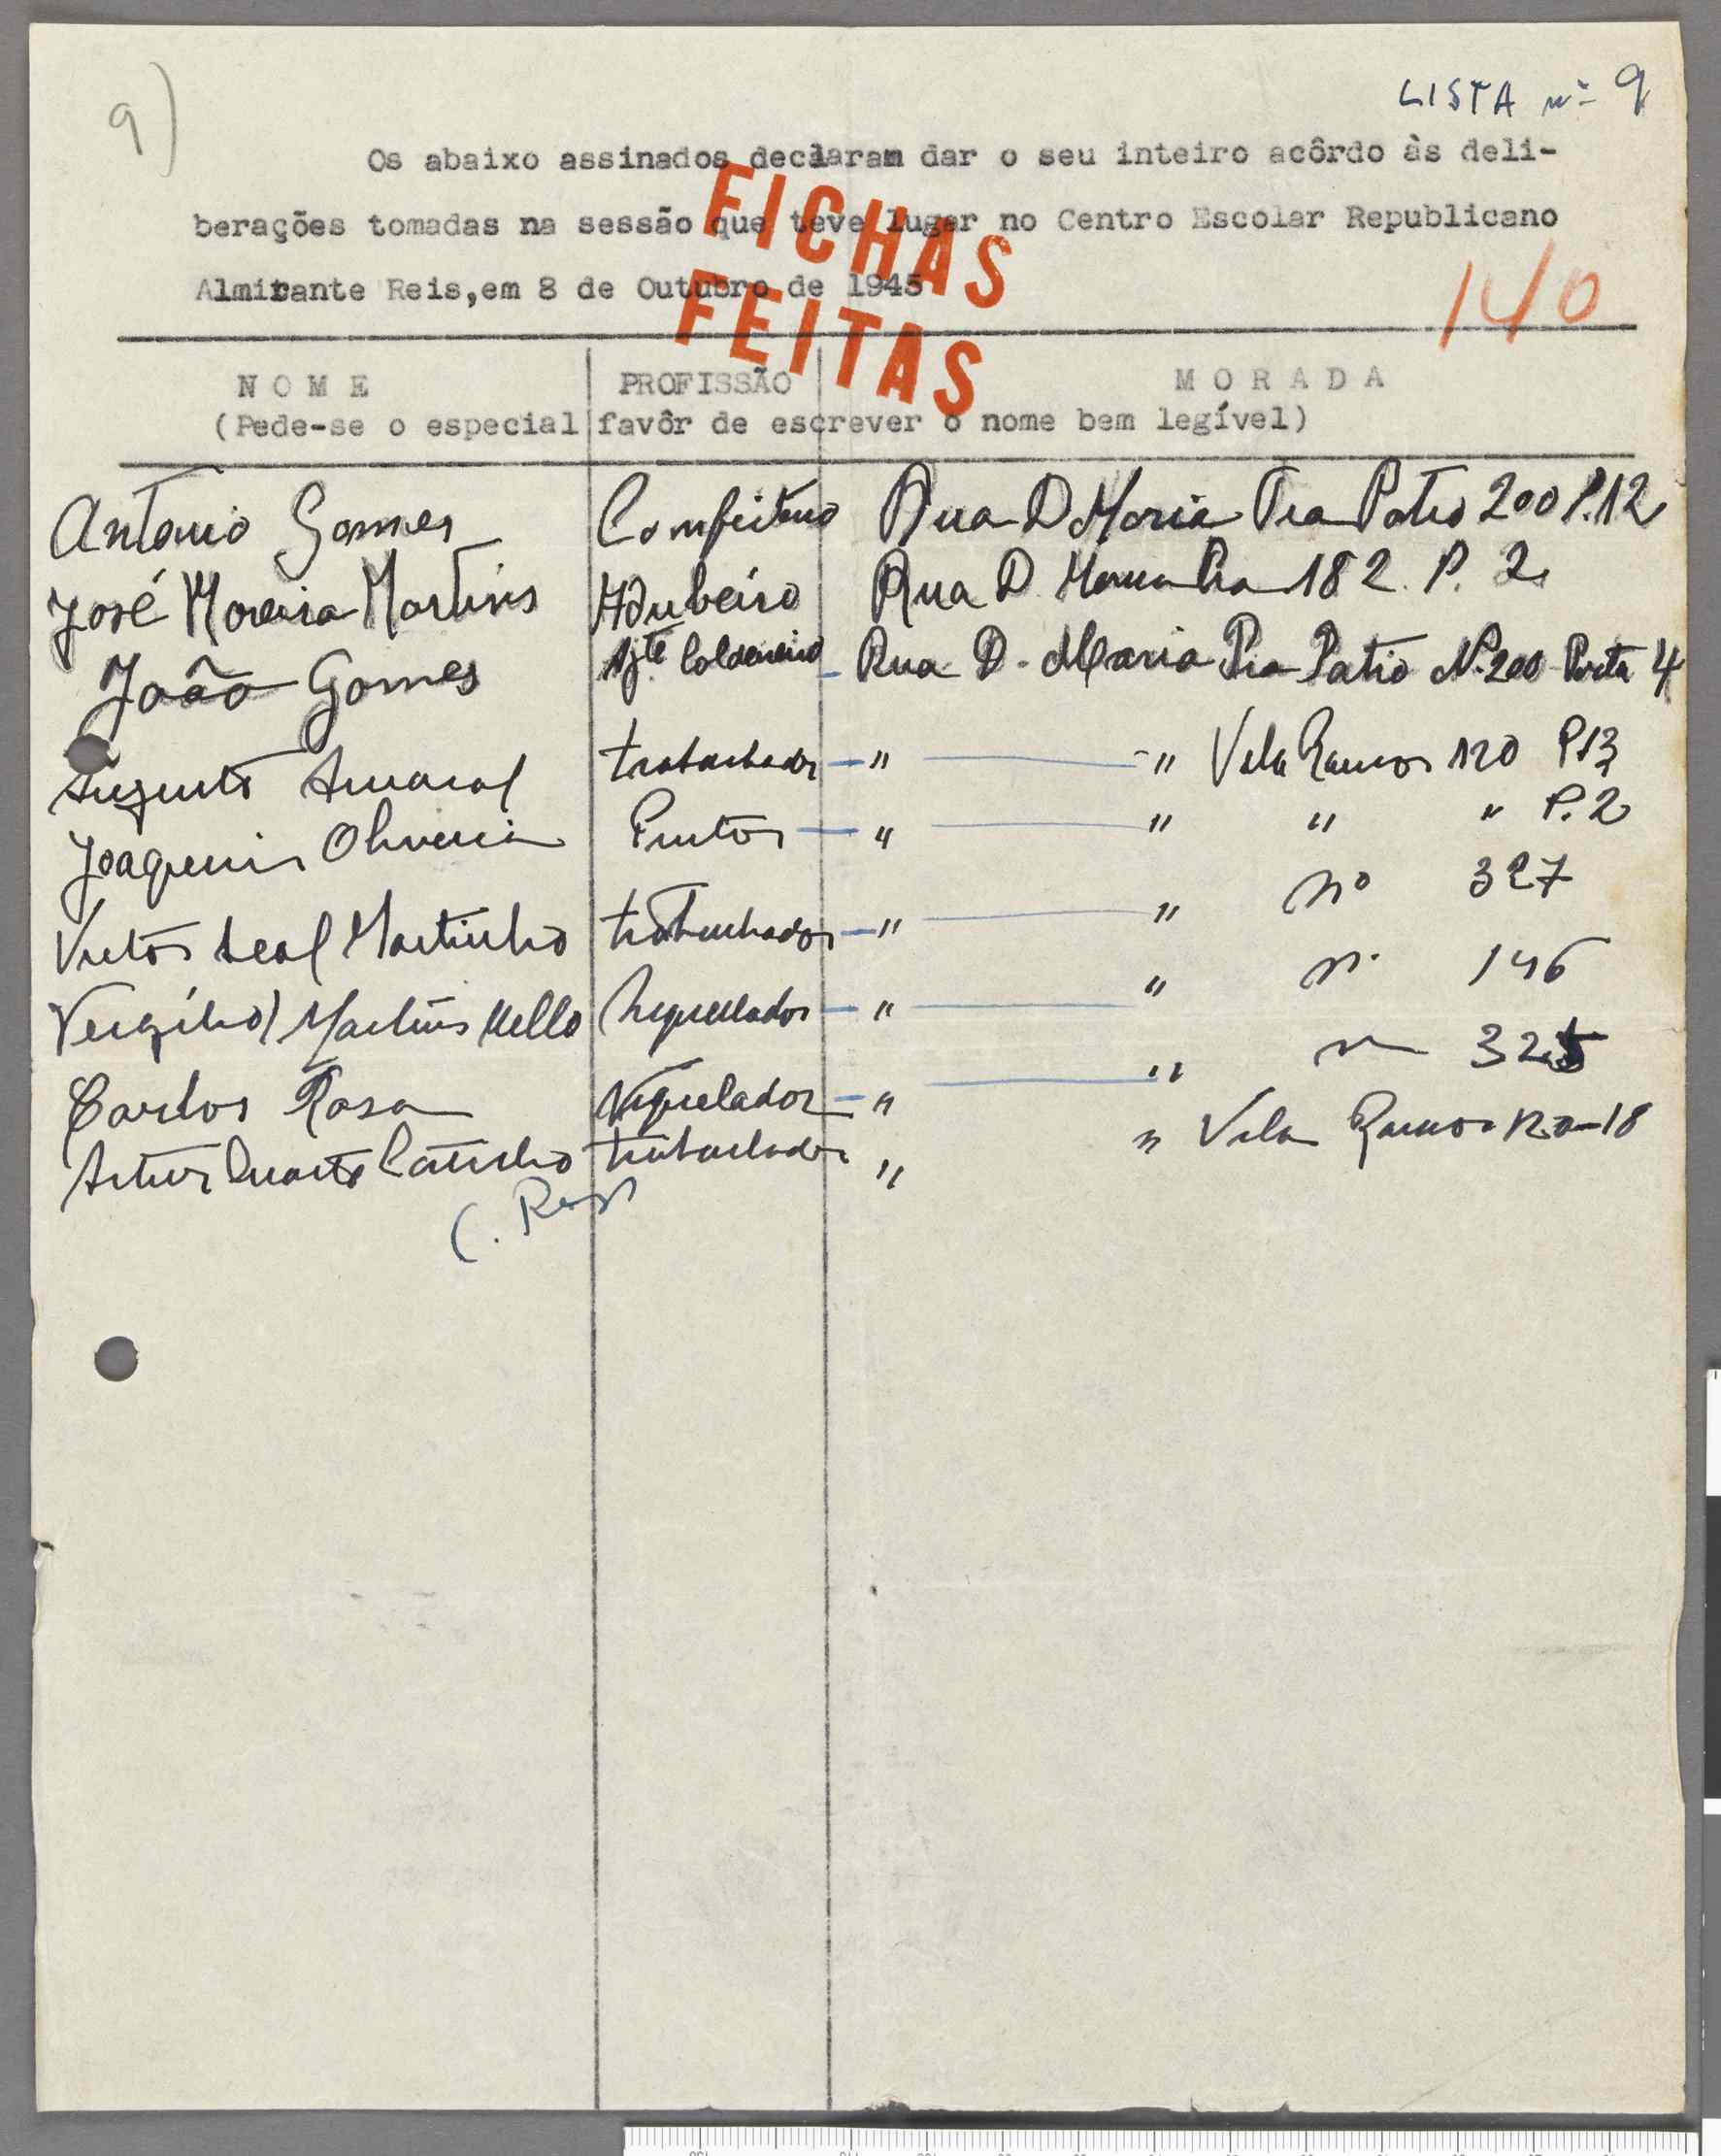 9)
LISTA nº 9
Os abaixo assinados declaram dar o seu inteiro acôrdo às deli-
berações tomadas na sessão que teve lugar no Centro Escolar Republicano
Almirante Reis,em 8 de Outubro de 1945
FICHAS
FEITAS
140
NOME PROFISSÃO MORADA
(Pede-se o especial favôr de escrever o nome bem legível)
Antonio Gomes Confeiteiro Rua D Maria Pia Patio 200 P.12
José Moreira Martins Adubeiro Rua D. Maria Pia 182. P. 2
João Gomes Ajte Caldeireiro Rua D. Maria Pia Patio Nº 200 Porta 4
Augusto Amaral trabalhador — " — " Vila Ramos 120 P13
Joaquim Oliveira Pintor — " — " " " P.2
Victor Leal Martinho trabalhador — " — " nº 327
Vergílio Martins Mello Niquelador — " — " nº 146
Carlos Rosa Niquelador — " — " nº 325
Artur Duarte Catinho trabalhador " " Vila Ramos 120-18